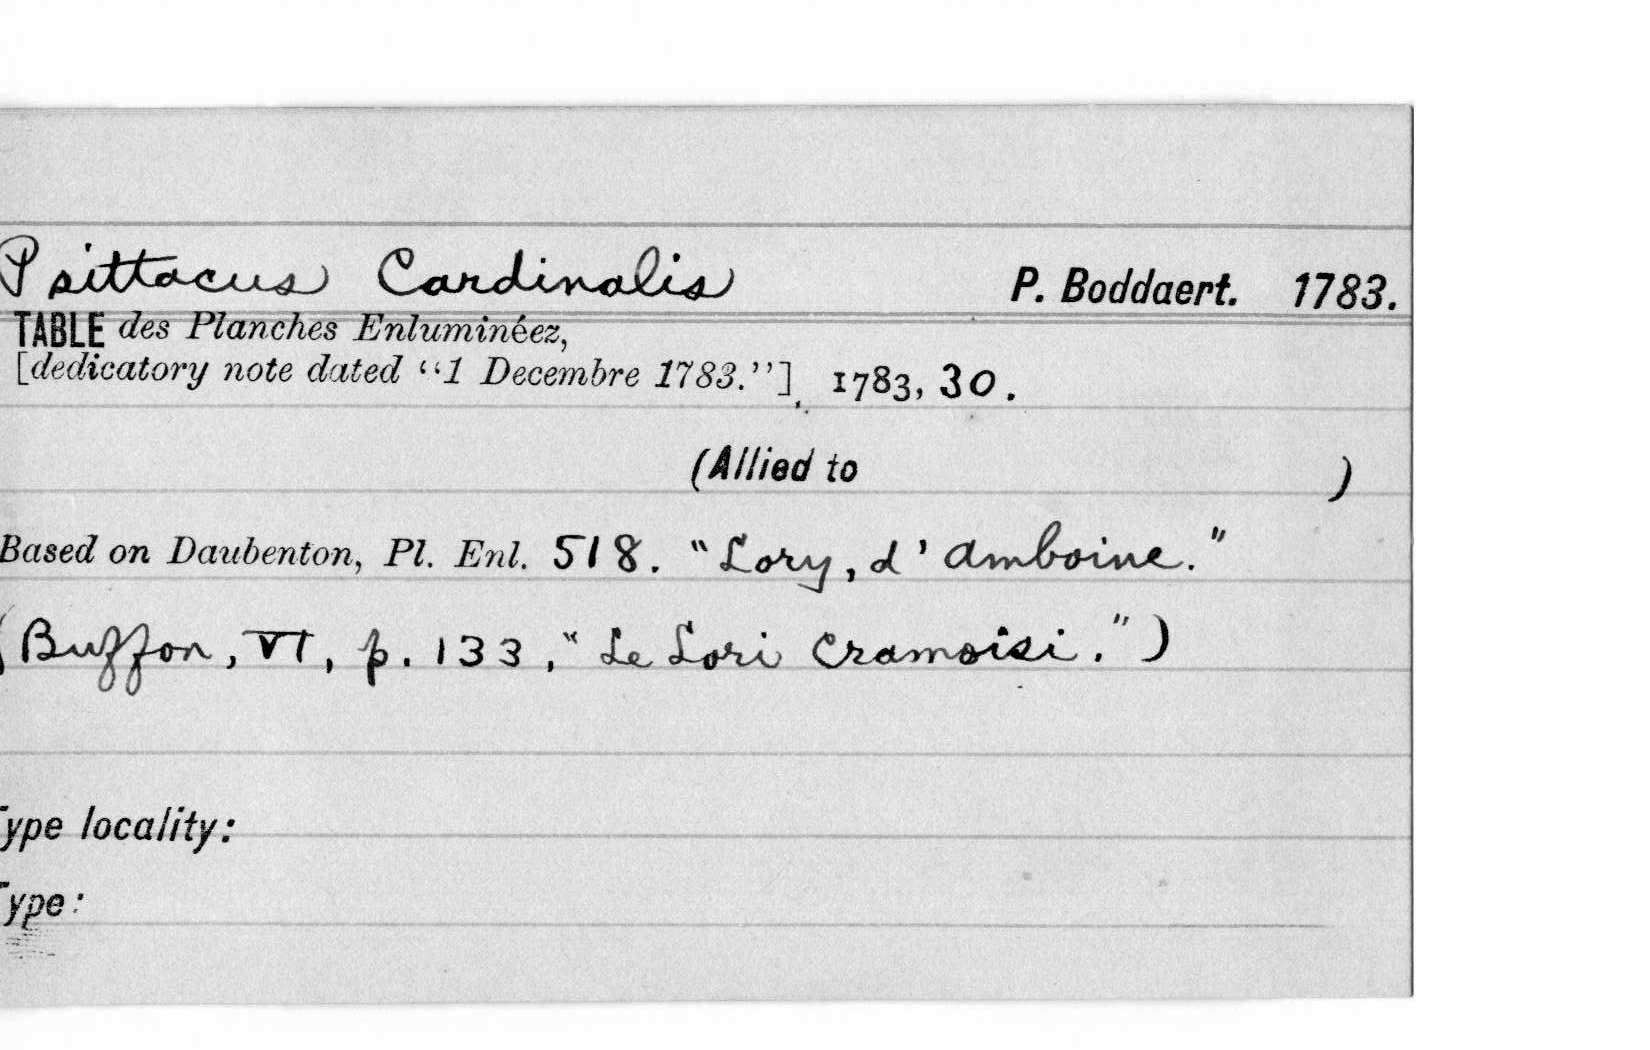 Psittacus Cardinalis P. Boddaert. 1783.
TABLE des Planches Enluminéez,
[dedicatory note dated “1 Decembre 1783.”], 1783, 30.
(Allied to )
Based on Daubenton, Pl. Enl. 518. "Lory, d'amboine."
(Buffon, VI, p. 133, "Le Lori Cramoisi.")
Type locality:
Type: